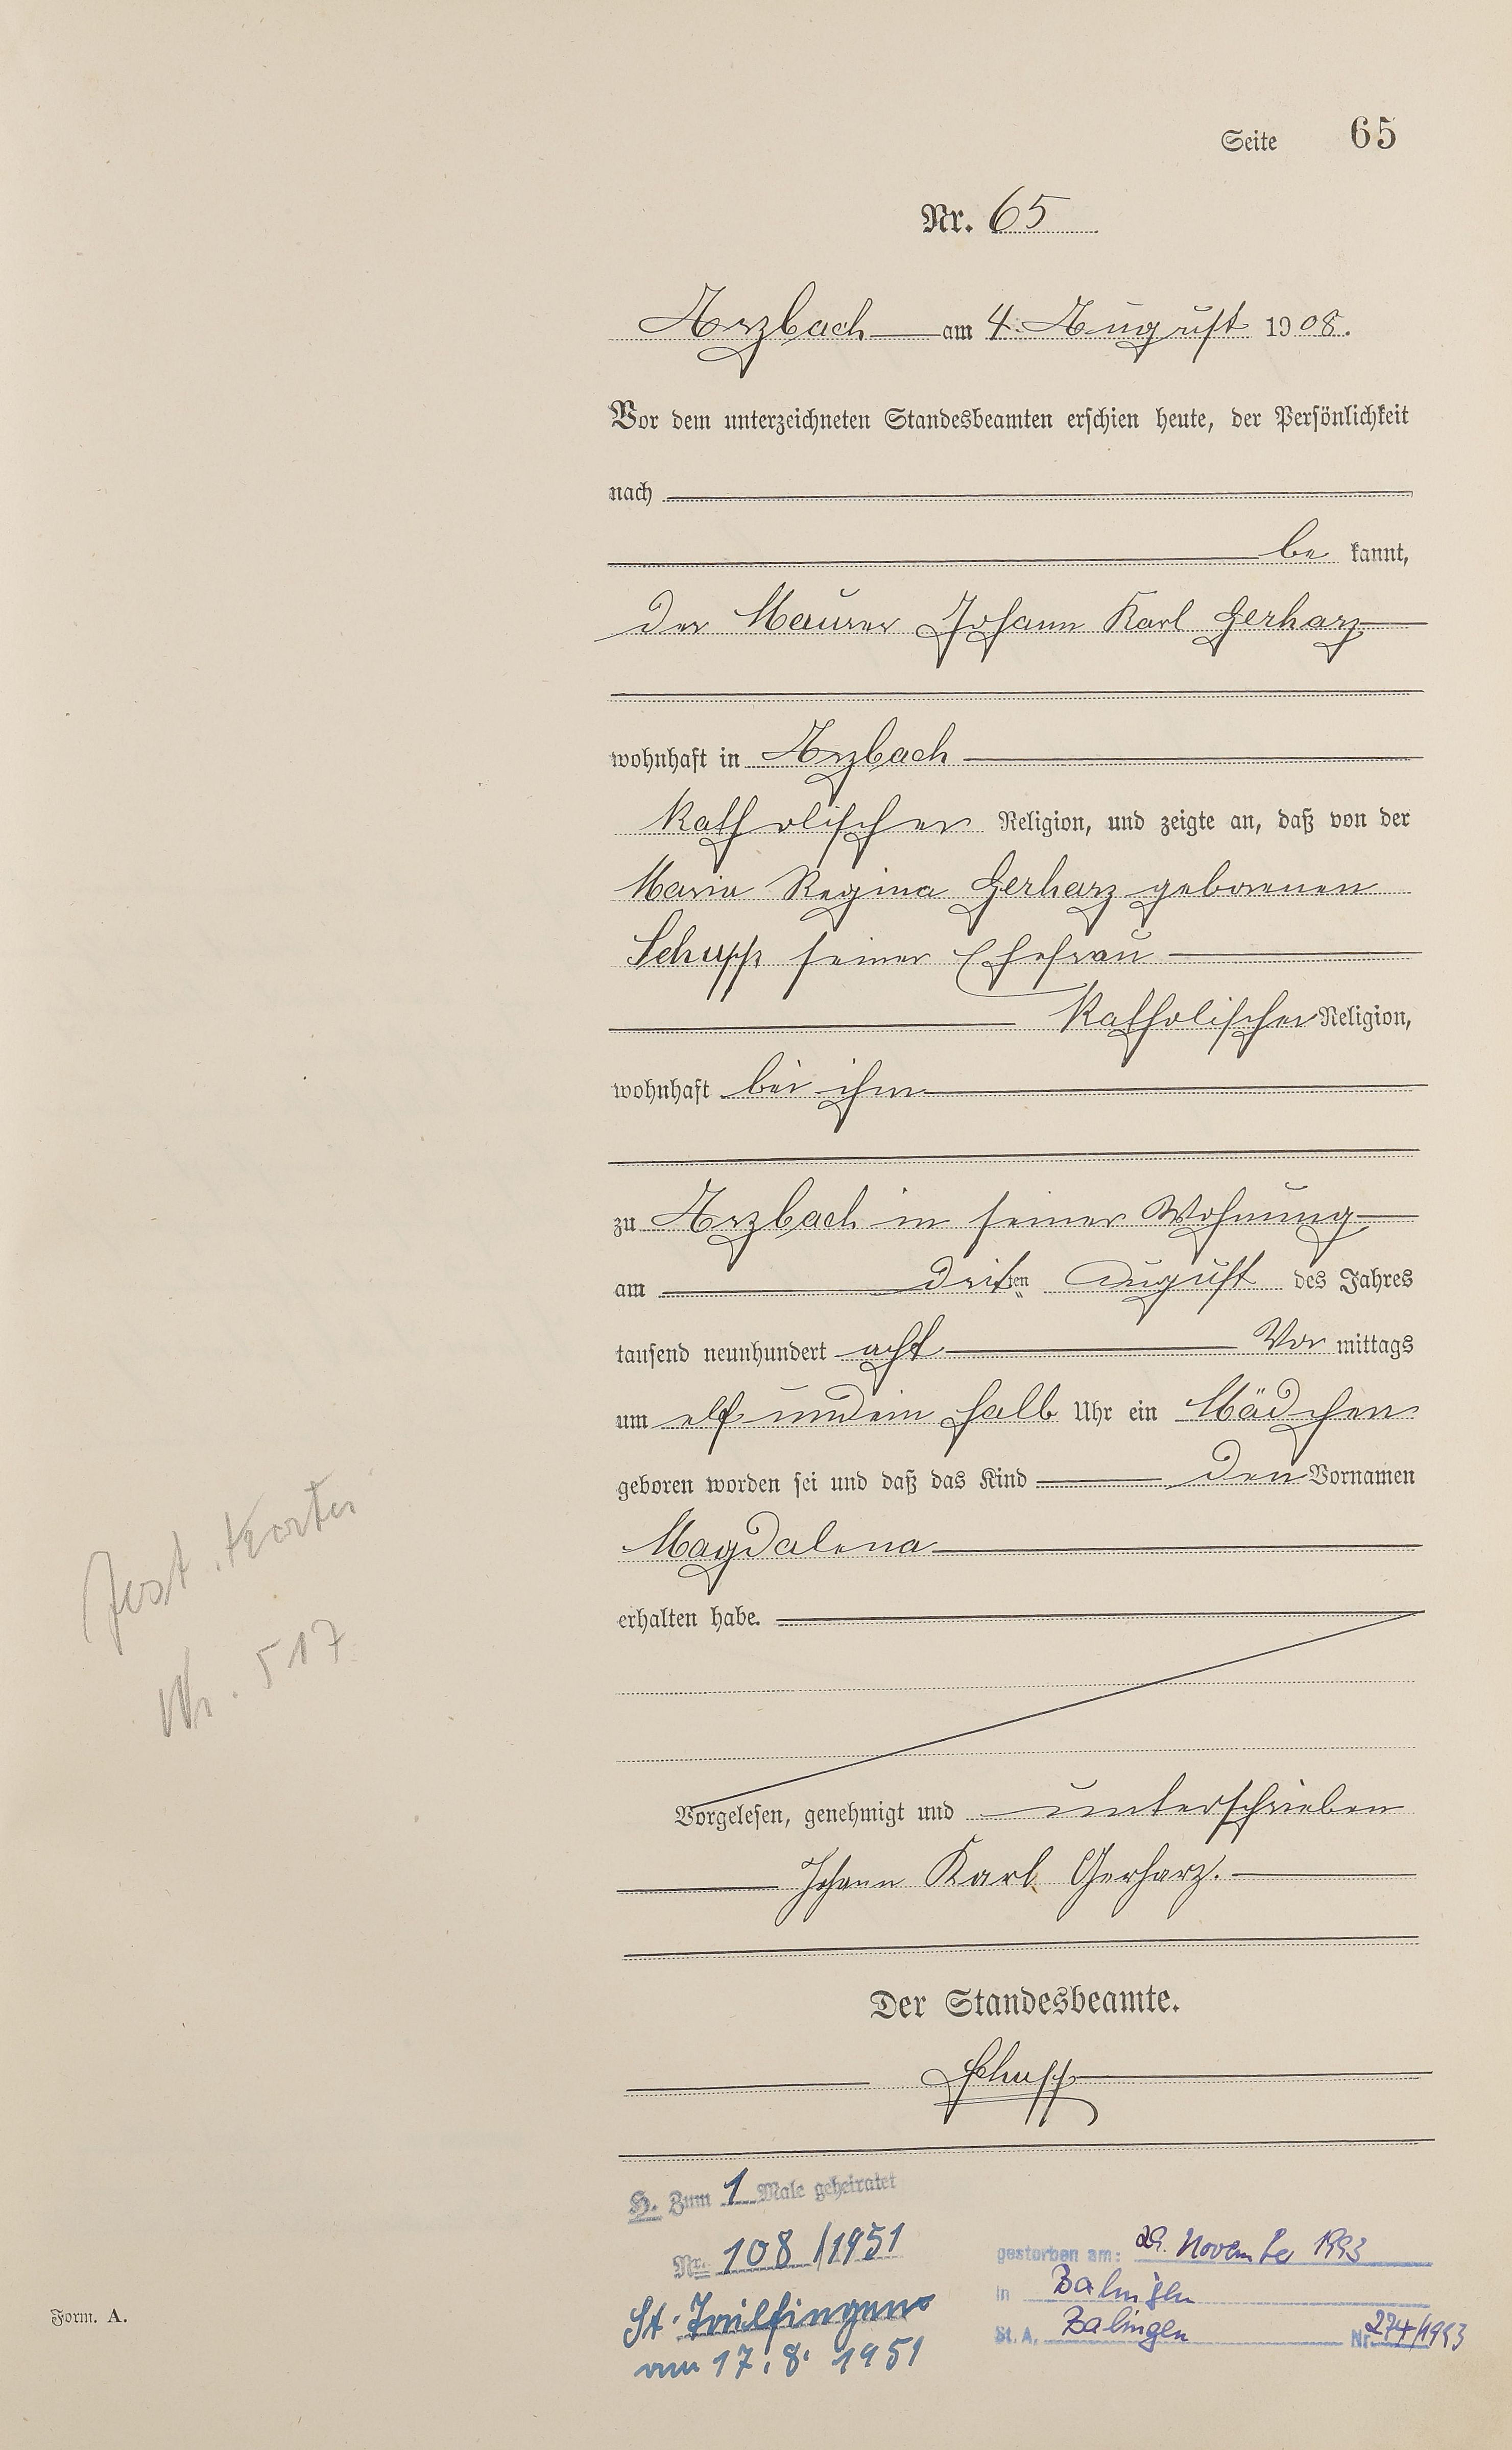 Seite 65
Nr. 65
Arzbach am 4. August 1908.
Vor dem unterzeichneten Standesbeamten erschien heute, der Persönlichkeit
nach
be kannt,
der Maurer Johann Karl Gerharz
wohnhaft in Arzbach
katholischer Religion, und zeigte an, daß von der
Maria Regina Gerharz geborenen
Schupp seiner Ehefrau
katholischer Religion,
wohnhaft bei ihm
zu Arzbach in seiner Wohnung
am dritten August des Jahres
tausend neunhundert acht Vor mittags
um elf undein halb Uhr ein Mädchen
geboren worden sei und daß das Kind den Vornamen
Magdalena
erhalten habe.
Vorgelesen, genehmigt und unterschrieben
Johann Karl Gerharz.
Der Standesbeamte.
Schupp
H. Zum 1 Male geheiratet
Nr. 108/1951
St. Tailfingen
am 17.8.1951
gestorben am: 29. November 1993
in Balingen
St. A. Balingen Nr. 274/1993
Nr. 517
Form. A.